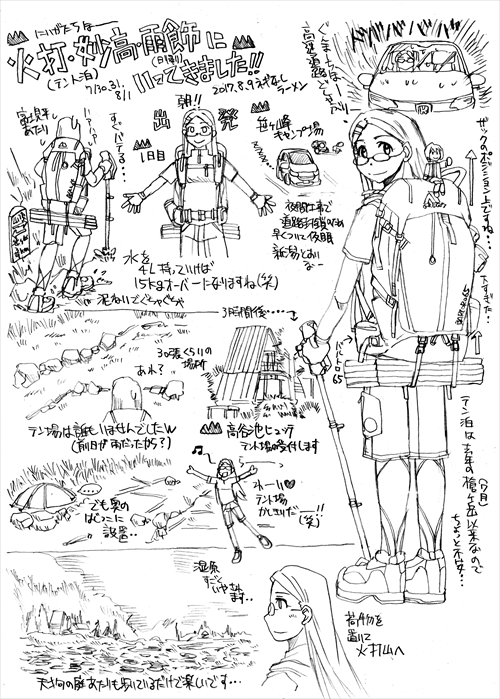 にいがたちほー
火打・妙高・雨飾に
(テント泊)
(日帰り)
7/30.31.
8/1
いってきました!!
2017.8.9 えぞなし
ラーメン
ぐんまちほー
高速道路
どしゃぶり
バババババババ
朝!!
出発
1日目
笹ヶ峰
キャンプ場
夜間工事で
早くついて夜明
富士見平
あたり
すべってる…
水を
4L持っていけば
15kgオーバーになりますね(笑)
泥ねいでぐちゃぐちゃ
ザックのポジション上ですね…
下すぎた…
バルトロ
65
3時間後……
30張くらいの
場所
あれ?
テン場は誰もいませんでしたw
(前日が雨だったから?)
高谷池ヒュッテ
テント場の受付します
らー
わーい♡
テント場
かしきりだー!!
(笑)
…
でも奥の
はじっこに
設置..
テン泊は去年の槍ヶ岳以来なので
(9月)
ちょっと不安…
湿原
すごい
いやされ
ます..
荷物を
置いて
火打山へ
天狗の庭あたりも歩いているだけで楽しいです…